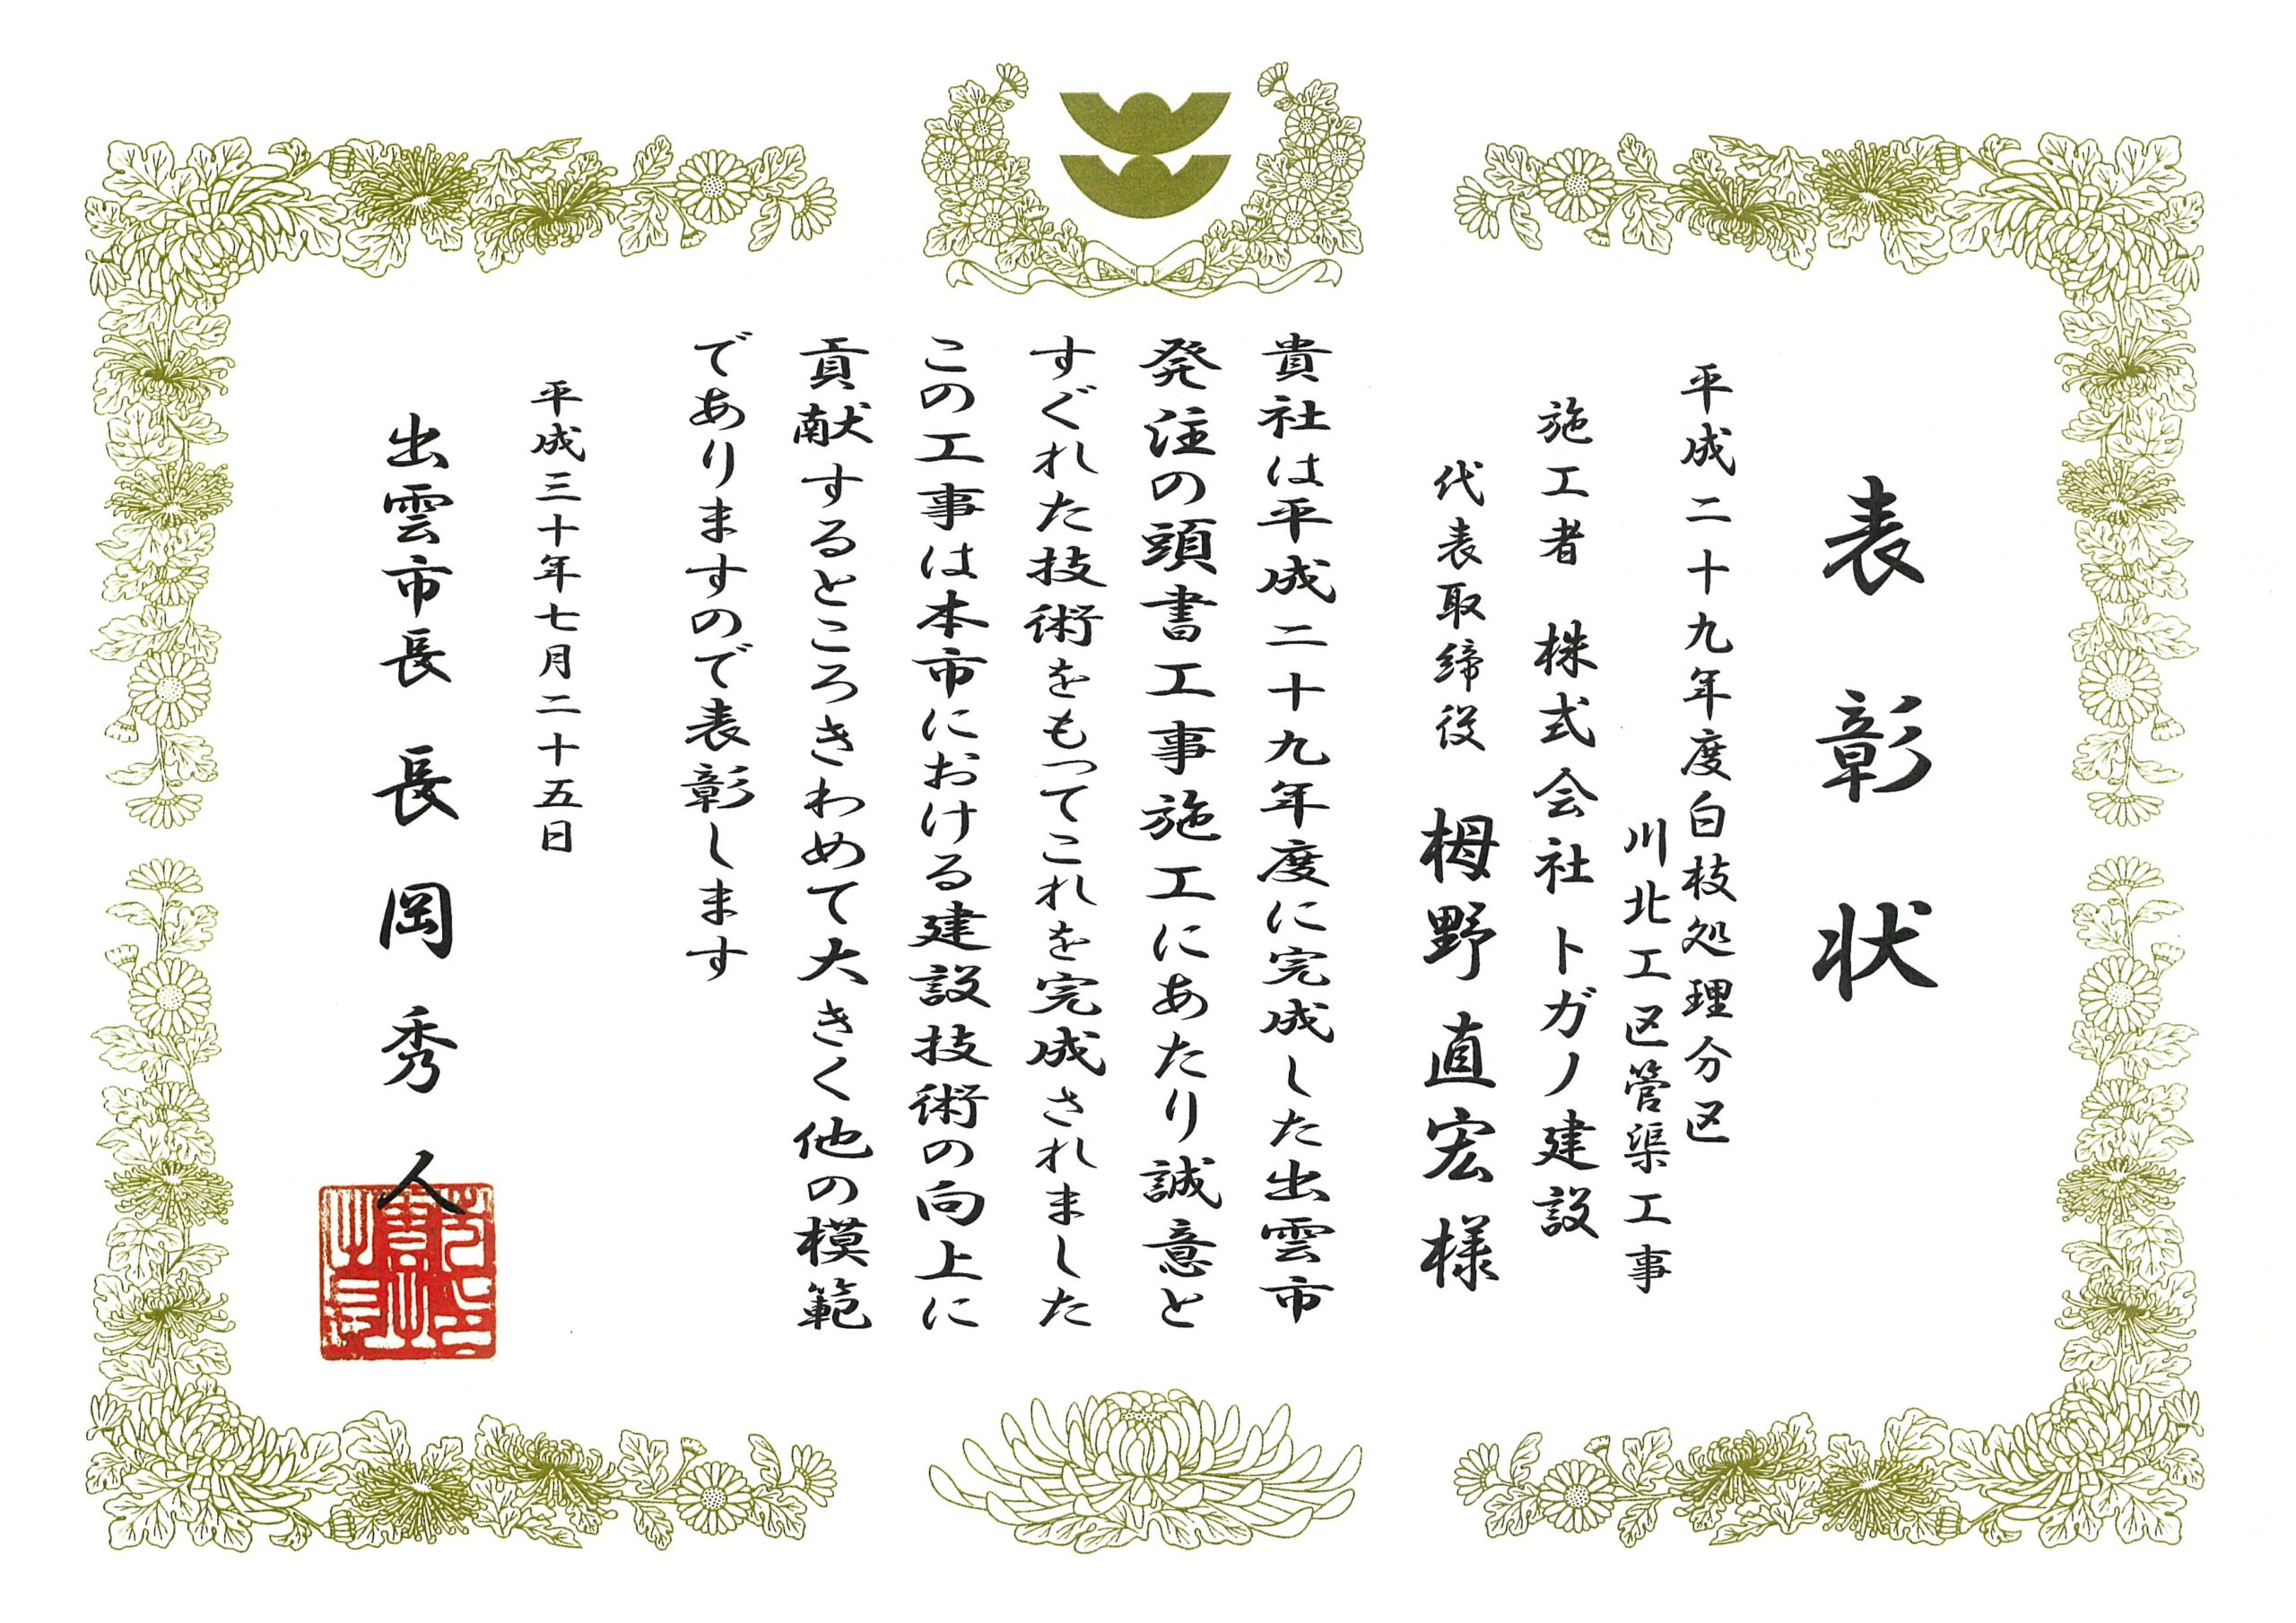 表彰状
平成二十九年度白枝処理分区
川北工区管渠工事
施工者 株式会社トガノ建設
代表取締役 栂野直宏様
貴社は平成二十九年度に完成した出雲市
発注の頭書工事施工にあたり誠意と
すぐれた技術をもってこれを完成されました
この工事は本市における建設技術の向上に
貢献するところきわめて大きく他の模範
でありますので表彰します
平成三十年七月二十五日
出雲市長 長岡秀人